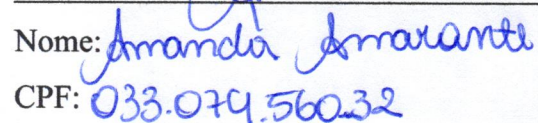 Nome: Amanda Amarante
CPF: 033.074.560.32